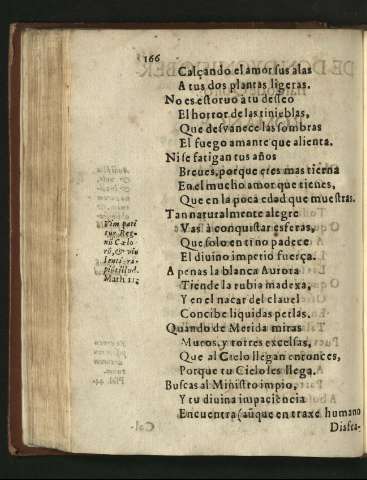 166
Calçando el amor sus alas
A tus dos plantas ligeras.
No es estoruo a tu desseo
El horror de las tinieblas,
Que desvanece las sombras
El fuego amante que alienta.
Ni se fatigan tus años
Breues, porque eres mas tierna
En el mucho amor que tienes,
Que en la poca edad que muestras.
Tan naturalmente alegre
Vas a conquistar esferas,
Que solo en ti no padece
El diuino imperio fuerça.
Apenas la blanca Aurora
Tiende la rubia madexa,
Y en el nacar del clauel
Concibe liquidas perlas.
Quando de Merida miras
Muros, y torres excelsas,
Que al Cielo llegan entonces,
Porque tu Cielo les llega.
Buscas al Ministro impio,
Y tu diuina impaciencia
Encuentra (aũque en traxe humano
Disfra-
Vim pati
tur Reg-
nũ Cælo
rũ, & vio
lenti ra-
piũt illud.
Math 11.